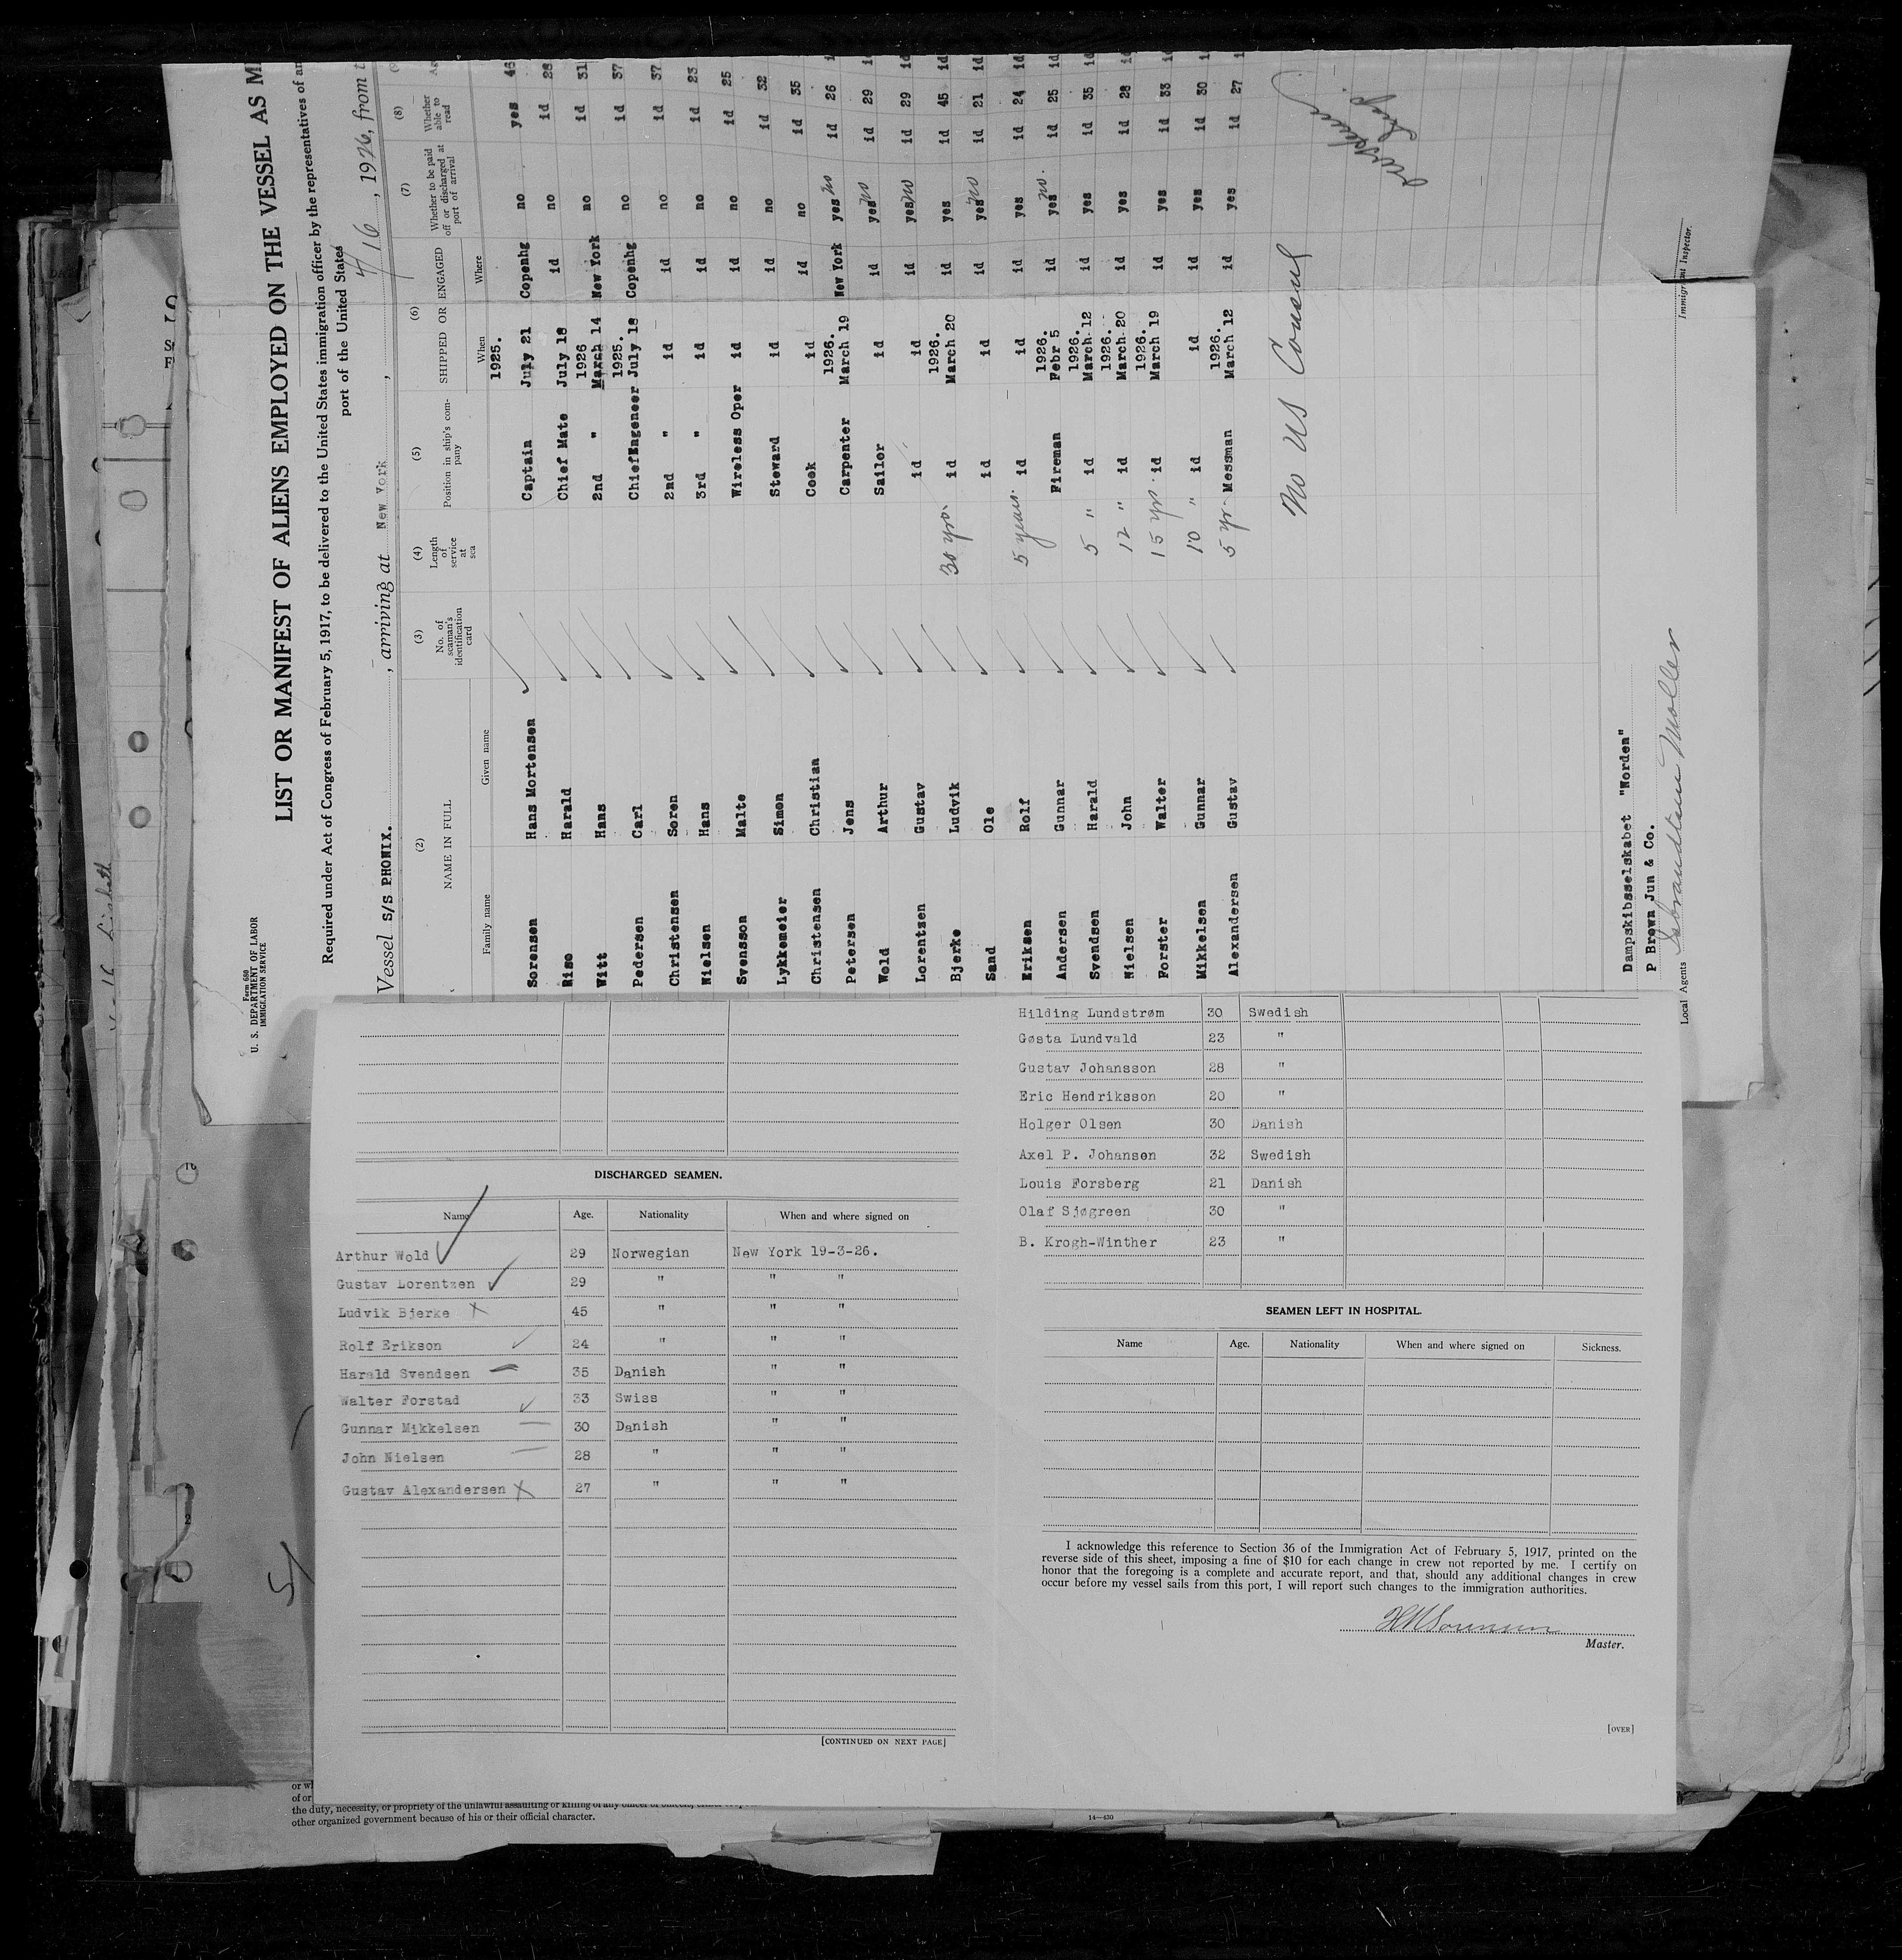 Form 680
U. S. DEPARTMENT OF LABOR
IMMIGRATION SERVICE
LIST OR MANIFEST OF ALIENS EMPLOYED ON THE VESSEL AS M
Required under Act of Congress of February 5, 1917, to be delivered to the United States immigration officer by the representatives of an
port of the United States
Vessel s/s PHONIX. , arriving at New York , 4/16 , 1926, from t
(2) (3) (4) (5) (6) (7) (8) (9
NAME IN FULL No. of seaman's identification card Length of service at sea Position in ship's company SHIPPED OR ENGAGED Whether to be paid off or discharged at port of arrival Whether able to read Ag
Family name Given name When Where
1925.
Sorensen Hans Mortensen Captain July 21 Copenhg no yes 46
Riso Harald Chief Mate July 18 id no id 28
1926
Witt Hans 2nd " March 14 New York no id 31
1925.
Pedersen Carl ChiefEngeneer July 18 Copenhg no id 37
Christensen Soren 2nd " id id no id 37
Nielsen Hans 3rd " id id no id 23
Svensson Malte Wireless Oper id id no id 25
Lykkemeier Simon Steward id id no id 32
Christensen Christian Cook id id no id 35
1926.
Petersen Jens Carpenter March 19 New York yes no id 26 i
Wold Arthur Sailor id id yes no id 29 id
Lorentsen Gustav id id id yes no id 29 id
1926.
Bjerke Ludvik 30 yrs. id March 20 id yes id 45 id
Sand Ole id id id yes no id 21 id
Eriksen Rolf 5 years. id id id yes id 24 id
1926.
Andersen Gunnar Fireman Febr 5 id yes no. id 25 id
1926.
Svendsen Harald 5 " id March 12 id yes id 35 id
1926.
Nielsen John 12 " id March 20 id yes id 28 id
1926.
Forster Walter 15 yrs. id March 19 id yes id 33 id
Mikkelsen Gunnar 10 " id id id yes id 30 i
1926.
Alexandersen Gustav 5 yr. Messman March 12 id yes id 27 i
No US Consul
Dampskibsselskabet "Norden"
P Brown Jun & Co.
Local Agents
Immigrant Inspector.
DISCHARGED SEAMEN.
Name Age. Nationality When and where signed on
Arthur Wold 29 Norwegian New York 19-3-26.
Gustav Lorentzen 29 " " "
Ludvik Bjerke 45 " " "
Rolf Erikson 24 " " "
Harald Svendsen 35 Danish " "
Walter Forstad 33 Swiss " "
Gunnar Mikkelsen 30 Danish " "
John Nielsen 28 " " "
Gustav Alexandersen 27 " " "
[CONTINUED ON NEXT PAGE]
Hilding Lundstrøm 30 Swedish
Gøsta Lundvald 23 "
Gustav Johansson 28 "
Eric Hendriksson 20 "
Holger Olsen 30 Danish
Axel P. Johansen 32 Swedish
Louis Forsberg 21 Danish
Olaf Sjøgreen 30 "
B. Krogh-Winther 23 "
SEAMEN LEFT IN HOSPITAL.
Name Age. Nationality When and where signed on Sickness.
I acknowledge this reference to Section 36 of the Immigration Act of February 5, 1917, printed on the
reverse side of this sheet, imposing a fine of $10 for each change in crew not reported by me. I certify on
honor that the foregoing is a complete and accurate report, and that, should any additional changes in crew
occur before my vessel sails from this port, I will report such changes to the immigration authorities.
HMSorensen
Master.
[OVER]
or wh
of or
the duty, necessity, or propriety of the unlawful assaulting or killing of any officer or officers,
other organized government because of his or their official character.
14—430